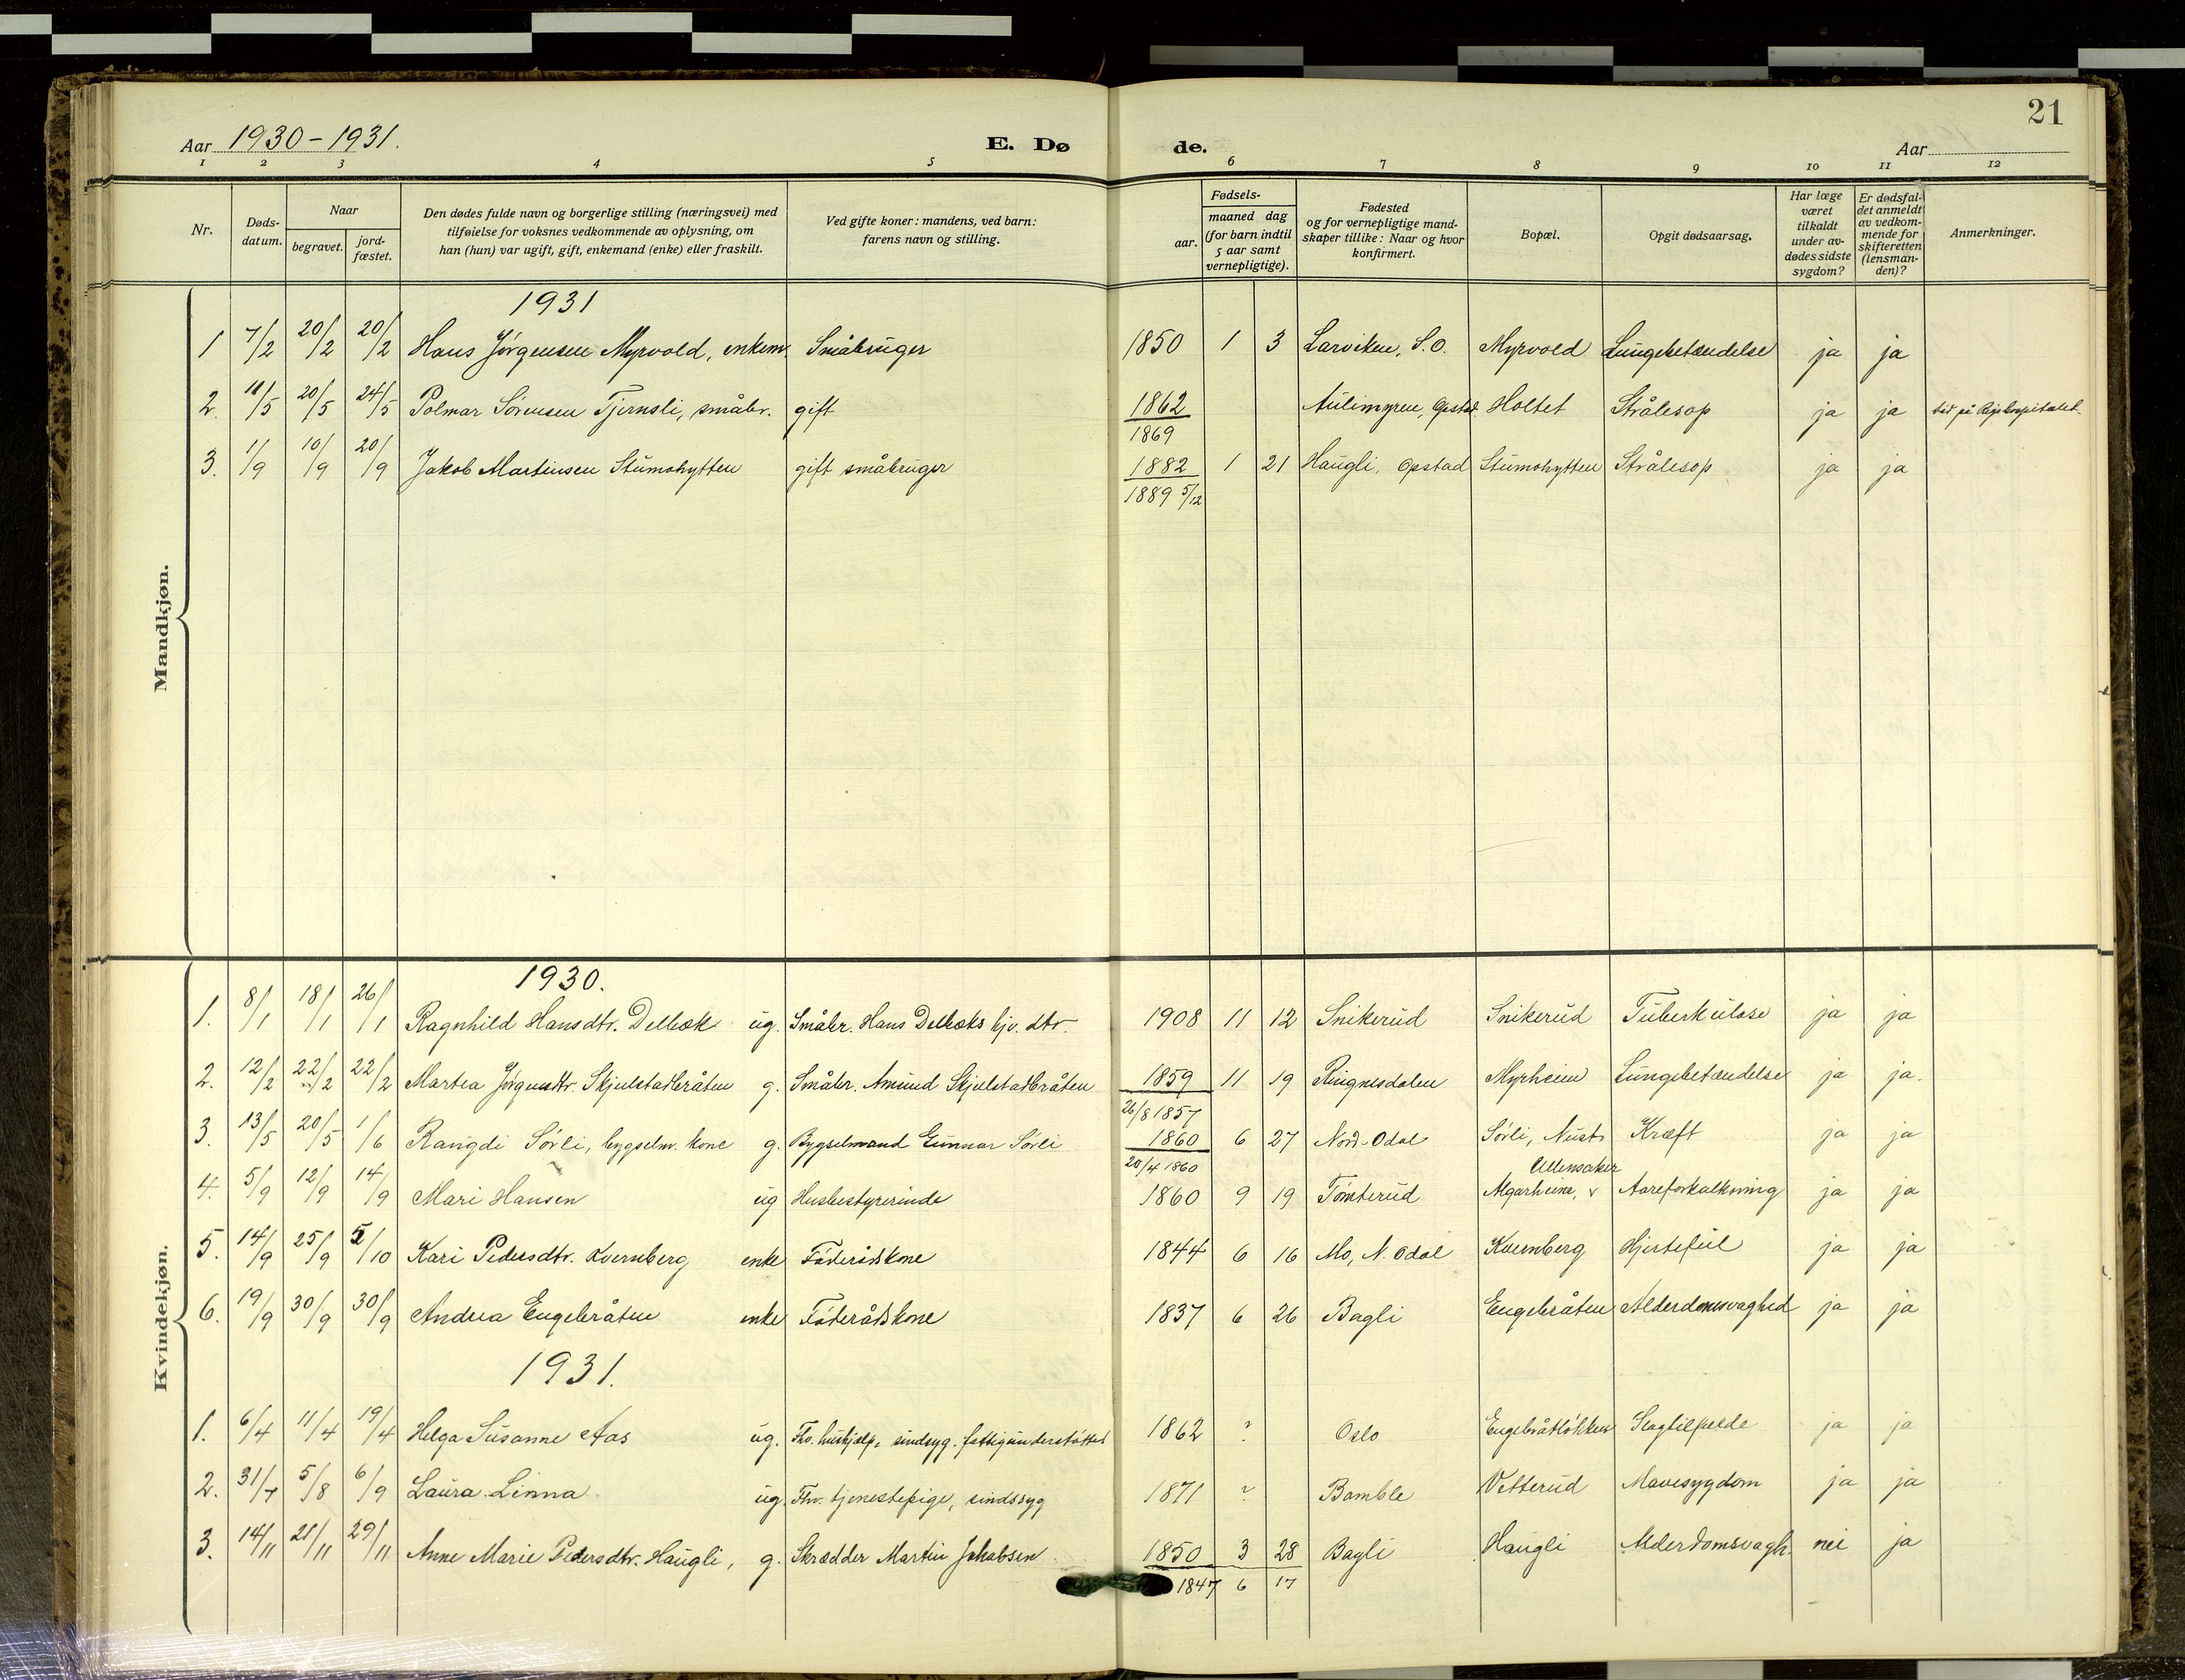 21
Aar 1930-1931. E. Dø de. Aar
1 2 3 4 5 6 7 8 9 10 11 12
Nr. Døds-datum. Naar begravet. jord-fæstet. Den dødes fulde navn og borgerlige stilling (næringsvei) med tilføielse for voksnes vedkommende av oplysning, om han (hun) var ugift, gift, enkemand (enke) eller fraskilt. Ved gifte koner: mandens, ved barn: farens navn og stilling. Fødsels- aar. maaned dag (for barn indtil 5 aar samt vernepligtige). Fødested og for vernepligtige mand-skaper tillike: Naar og hvor konfirmert. Bopæl. Opgit dødsaarsag. Har læge været tilkaldt under av-dødes sidste sygdom? Er dødsfal-det anmeldt av vedkom-mende for skifteretten (lensman-den)? Anmerkninger.
Mandkjøn.
1931
1 7/2 20/2 20/2 Hans Jørgensen Myrvold, enkem. Småbruger 1850 1 3 Larviken, S.O. Myrvold Lungebetændelse ja ja
2. 11/5 20/5 24/5 Polmar Sørensen Tjernsli, småbr. gift 1862 Aulimyren, Opstad Holtet Strålesop ja ja død på Rikshospitalet
1869
3. 1/9 10/9 20/9 Jakob Martinsen Stumohytten gift småbruger 1882 1 21 Haugli, Opstad Stumohytten Strålesop ja ja
1889 5/12
Kvindekjøn.
1930.
1. 8/1 18/1 26/1 Ragnhild Hansdtr. Delbæk ug. Småbr. Hans Delbæks hjv. dtr. 1908 11 12 Snikerud Snikerud Tuberkulose ja ja
2. 12/2 22/2 22/2 Martea Jørgensdtr. Skjulstadbråten g. Småbr. Amund Skjulstadbråten 1859 11 19 Ringnesdalen Myrheim Lungebetændelse ja ja.
26/8 1857
3. 13/5 20/5 1/6 Rangdi Sørli, bygselm. kone g. Bygselmand Gunnar Sørli 1860 6 27 Nord-Odal Sørli, Kræft ja ja
20/4 1860
Ullensaker
4. 5/9 12/9 14/9 Mari Hansen ug Husbestyrerinde 1860 9 19 Tomterud Algarheim, v Aareforkalkning ja ja
5. 14/9 25/9 5/10 Kari Pedersdtr. Kvernberg enke Føderådskone 1844 6 16 Mo, N. Odal Kvernberg Hjertefeil ja ja
6. 19/9 30/9 30/9 Andrea Engebråten enke Føderådskone 1837 6 26 Bagli Engebråten Alderdomsvaghed ja ja
1931.
1. 6/4 11/4 19/4 Helga Susanne Aas ug. Fhv. hushjælp, sindsyg. fattigunderstøttet 1862 ? Oslo Engebråtløkken Slagtilfælde ja ja
2. 31/7 5/8 6/9 Laura Linna ug. Fhv. tjenestepige, sindssyg 1871 ? Bamble Vetterud Mavesygdom ja ja
3. 14/11 21/11 29/11 Anne Marie Pedersdtr. Haugli, g. Skrædder Martin Jakobsen 1850 3 28 Bagli Haugli Alderdomsvagh. nei ja
1847 6 17